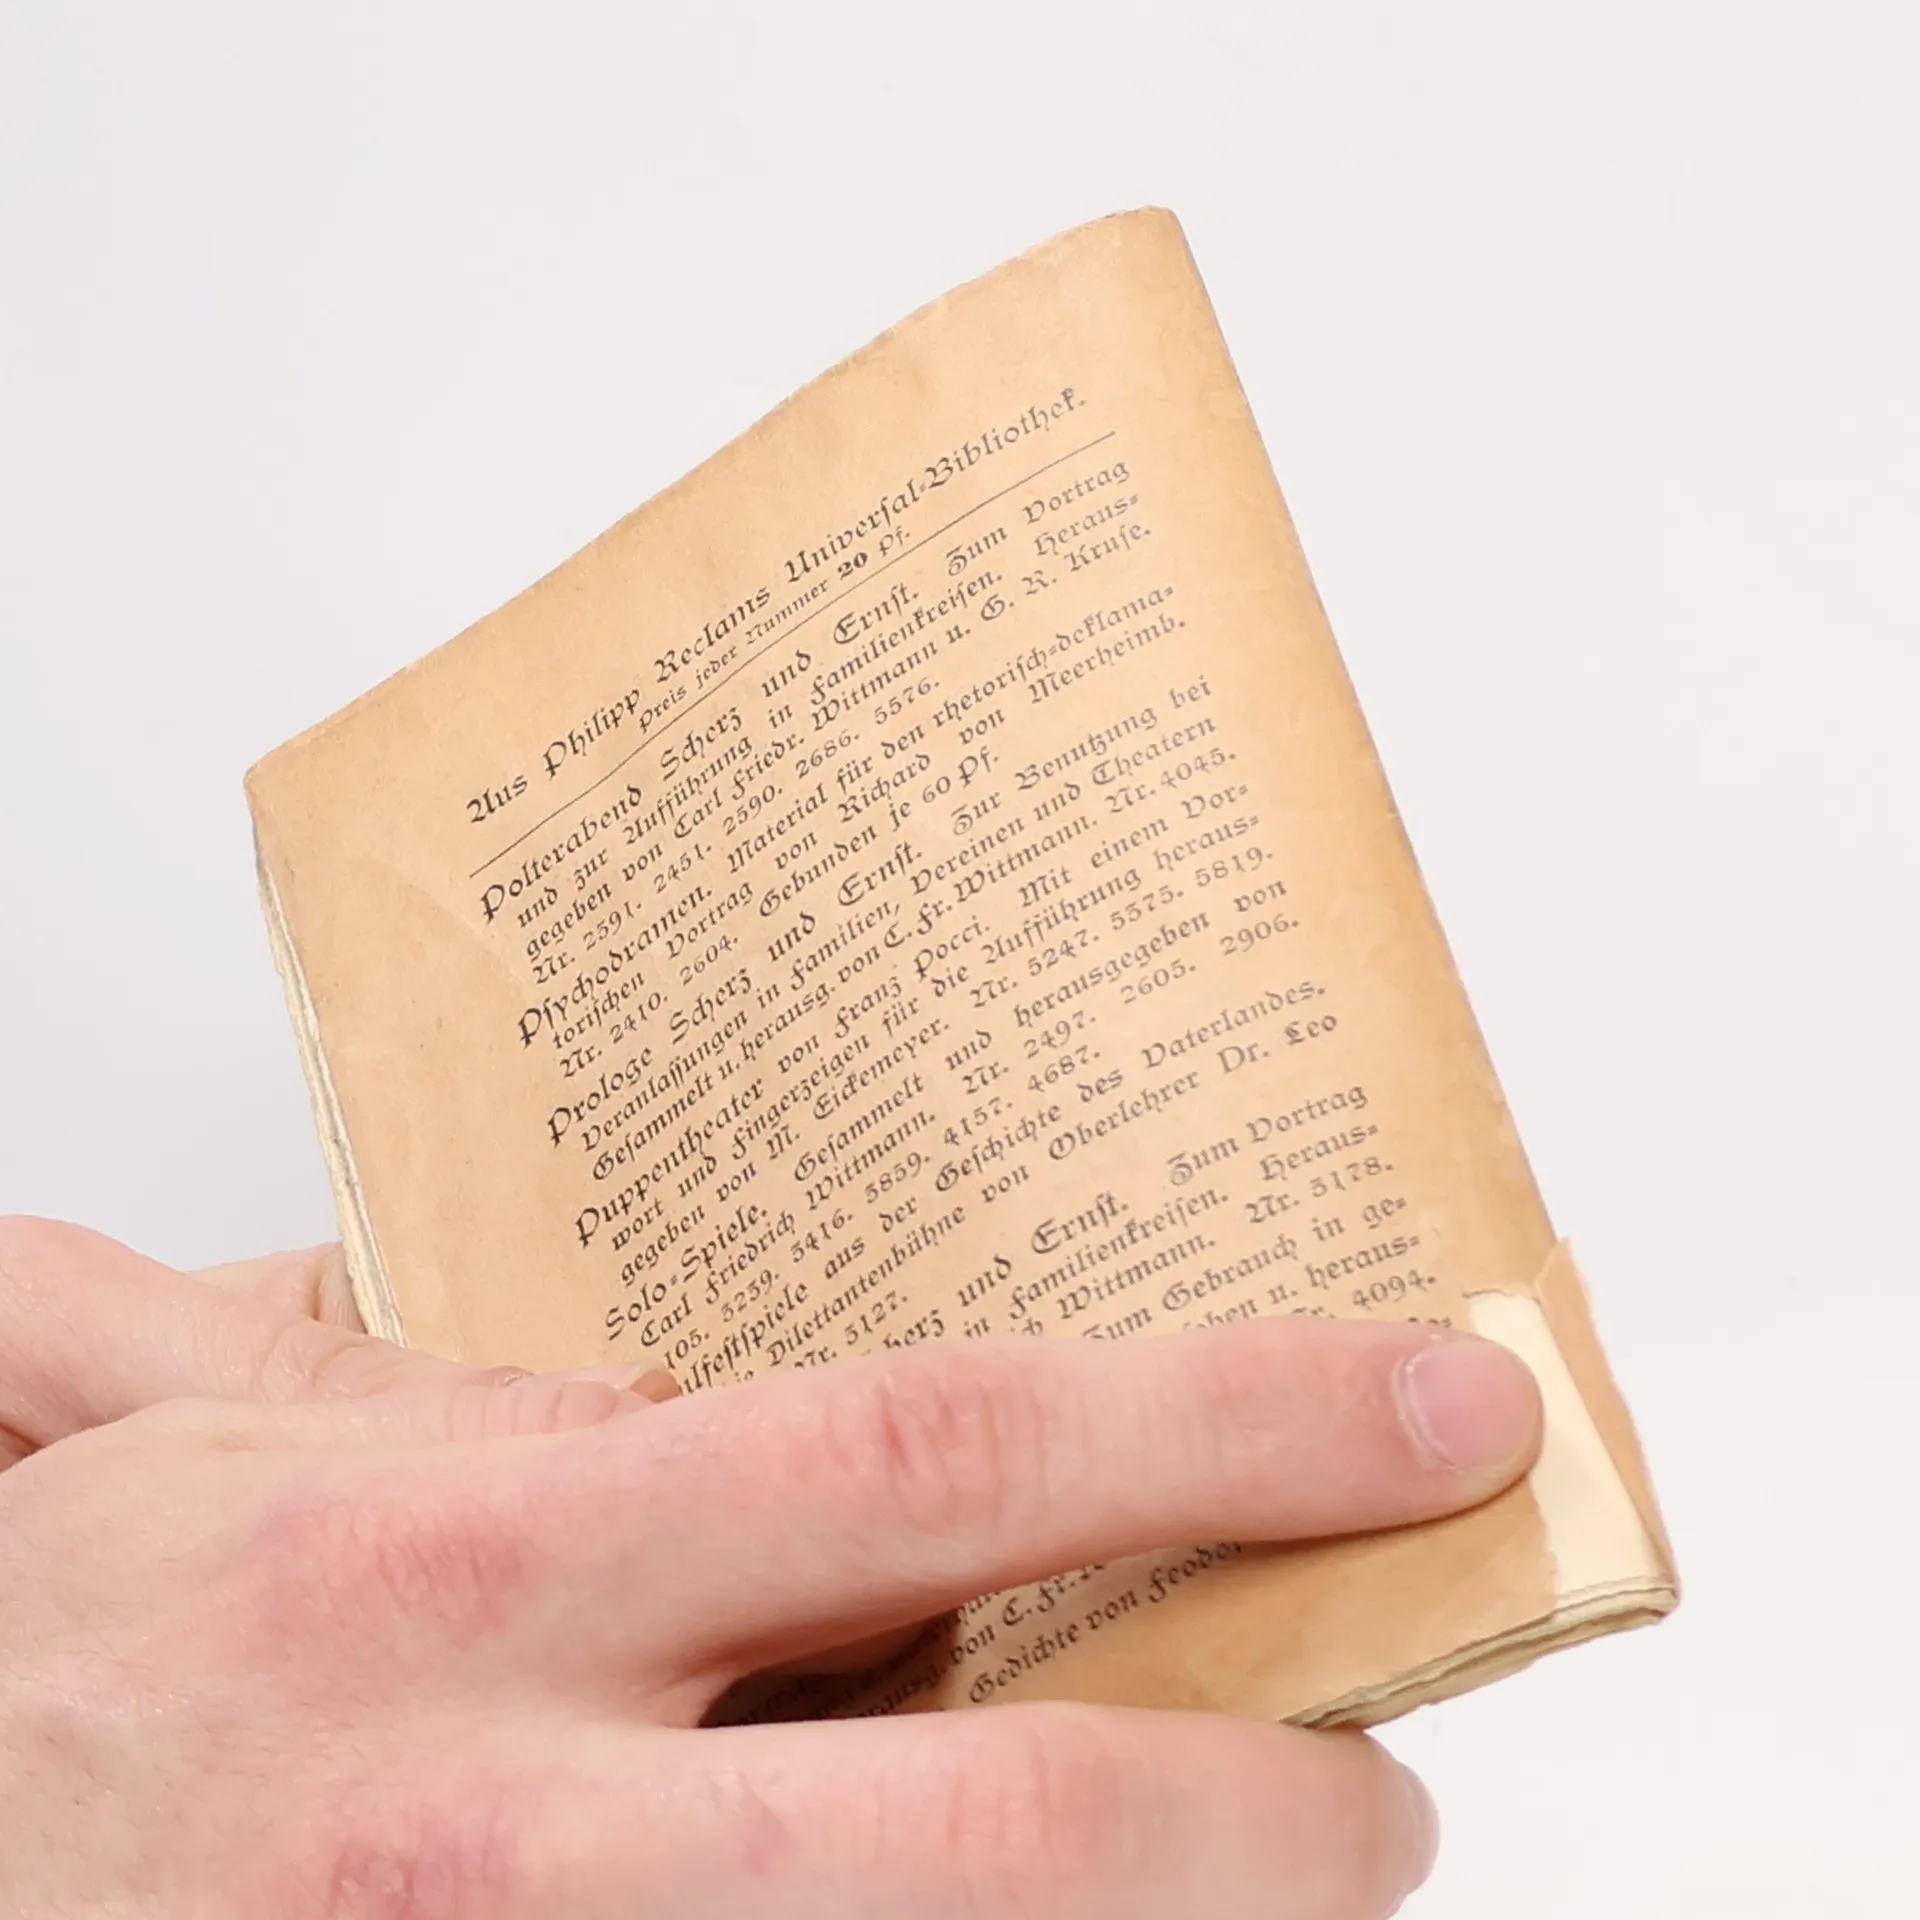 Aus Philipp Reclams Universal-Bibliothek.
Preis jeder Nummer 20 Pf.
Polterabend Scherz und Ernst. Zum Vortrag
und zur Aufführung in Familienkreisen. Heraus-
gegeben von Carl Friedr. Wittmann u. G. R. Kruse.
Nr. 2391. 2451. 2590. 2686. 5576.
Psychodramen. Material für den rhetorisch-deklama-
torischen Vortrag von Richard von Meerheimb.
Nr. 2410. 2604. Gebunden je 60 Pf.
Prologe Scherz und Ernst. Zur Benutzung bei
Veranlassungen in Familien, Vereinen und Theatern
Gesammelt u. herausg. von C. Fr. Wittmann. Nr. 4045.
Puppentheater von Franz Pocci. Mit einem Vor-
wort und Fingerzeigen für die Aufführung heraus-
gegeben von M. Eickemeyer. Nr. 5247. 5575. 5819.
Solo-Spiele. Gesammelt und herausgegeben von
Carl Friedrich Wittmann. Nr. 2497. 2605. 2906.
105. 3239. 3416. 3859. 4157. 4687.
ulfestspiele aus der Geschichte des Vaterlandes.
ie Dilettantenbühne von Oberlehrer Dr. Leo
Nr. 5127.
herz und Ernst. Zum Vortrag
in Familienkreisen. Heraus-
ich Wittmann. Nr. 3178.
Zum Gebrauch in ge-
eben u. heraus-
Nr. 4094.
von C. Fr.
Gedichte von Feodo